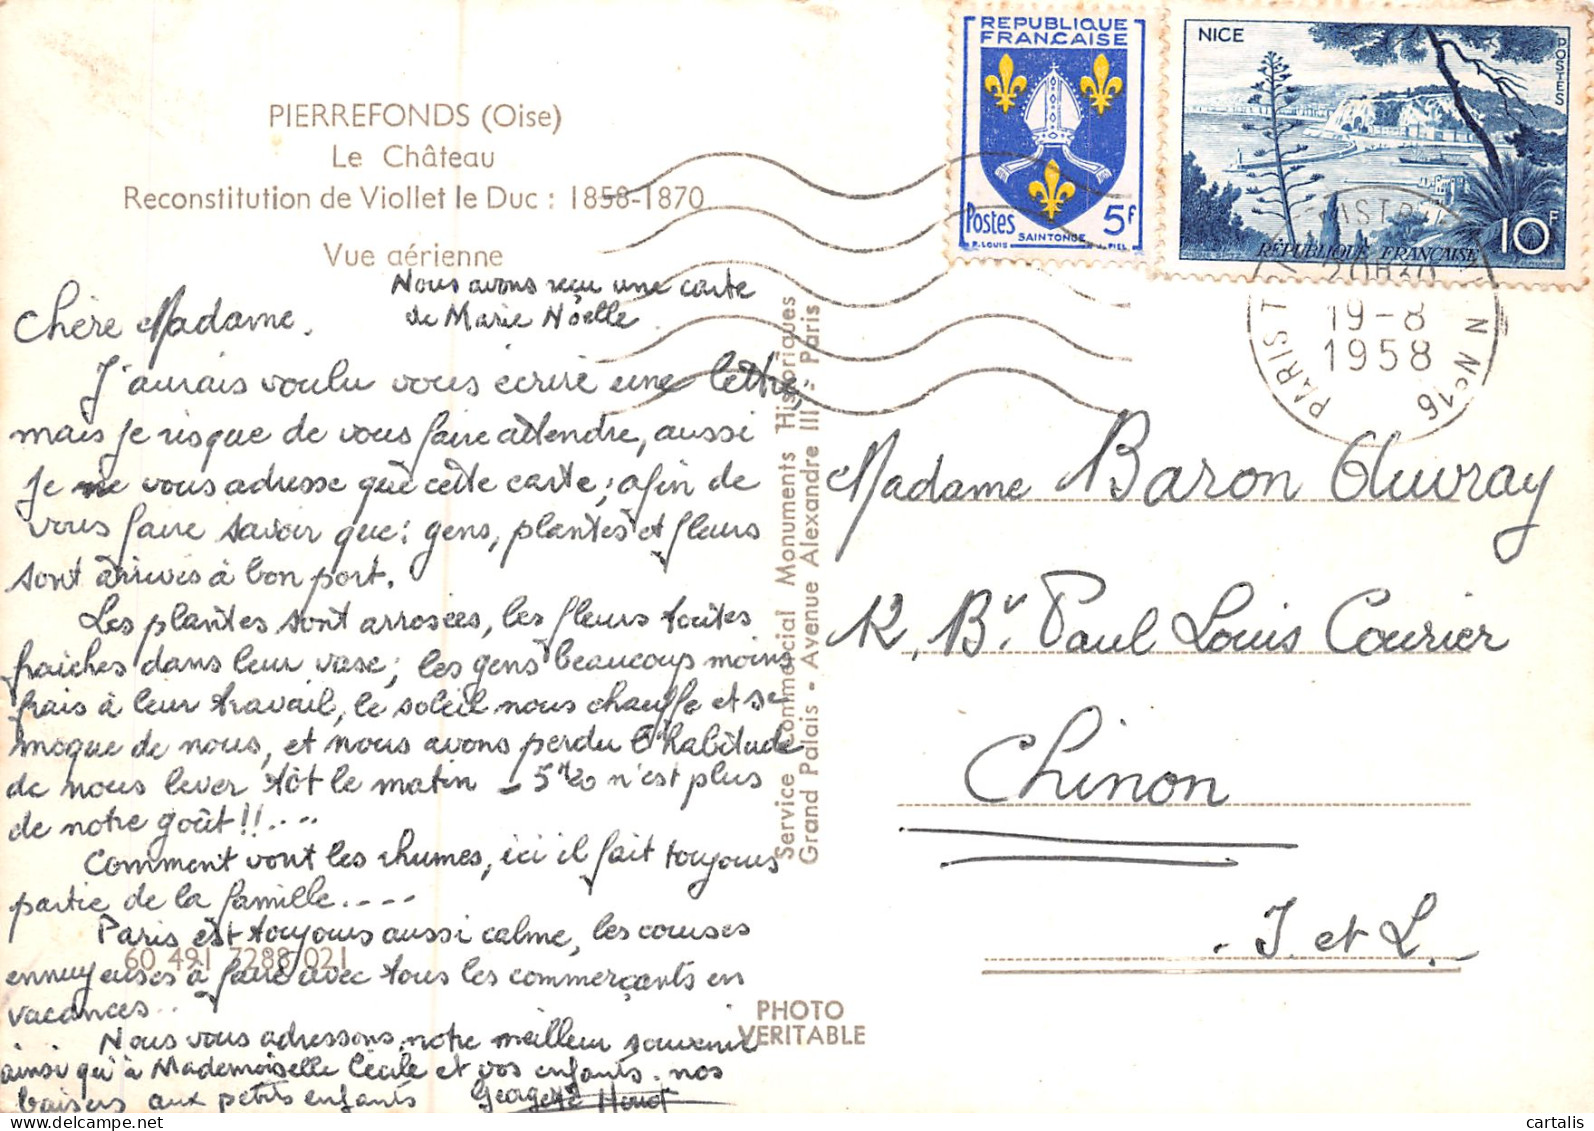 PIERREFONDS (Oise)
Le Château
Reconstitution de Viollet le Duc : 1858-1870
Vue aérienne
Nous avons reçu une carte
de Marie Noëlle.
Chère Madame.
J'aurais voulu vous écrire une lettre,
mais je risque de vous faire attendre, aussi
je ne vous adresse que cette carte; afin de
vous faire savoir que: gens, plantes et fleurs
sont arrivés à bon port.
Les plantes sont arrosées, les fleurs toutes
fraîches dans leur vase; les gens beaucoup moins
frais à leur travail, le soleil nous chauffe et se
moque de nous, et nous avons perdu l'habitude
de nous lever tôt le matin – 5h20 n'est plus
de notre goût!!....
Comment vont les rhumes, ici il fait toujours
partie de la famille....
Paris est toujours aussi calme, les courses
ennuyeuses à faire avec tous les commerçants en
vacances..
Nous vous adressons, notre meilleur souvenir
ainsi qu'à Mademoiselle Cécile et vos enfants. nos
baisers aux petits enfants Georgette
60 491 7288 021
Service Commercial Monuments Historiques
Grand Palais - Avenue Alexandre III - Paris
PHOTO
VERITABLE
REPUBLIQUE
FRANÇAISE
Postes 5f
SAINTONGE
R. LOUIS J. PIEL
NICE
POSTES
RÉPUBLIQUE FRANÇAISE
10F
PARIS N No 16
19-8
1958
Madame Baron Auvray
12, Bv. Paul Louis Courier
Chinon
I. et L.
cartalis